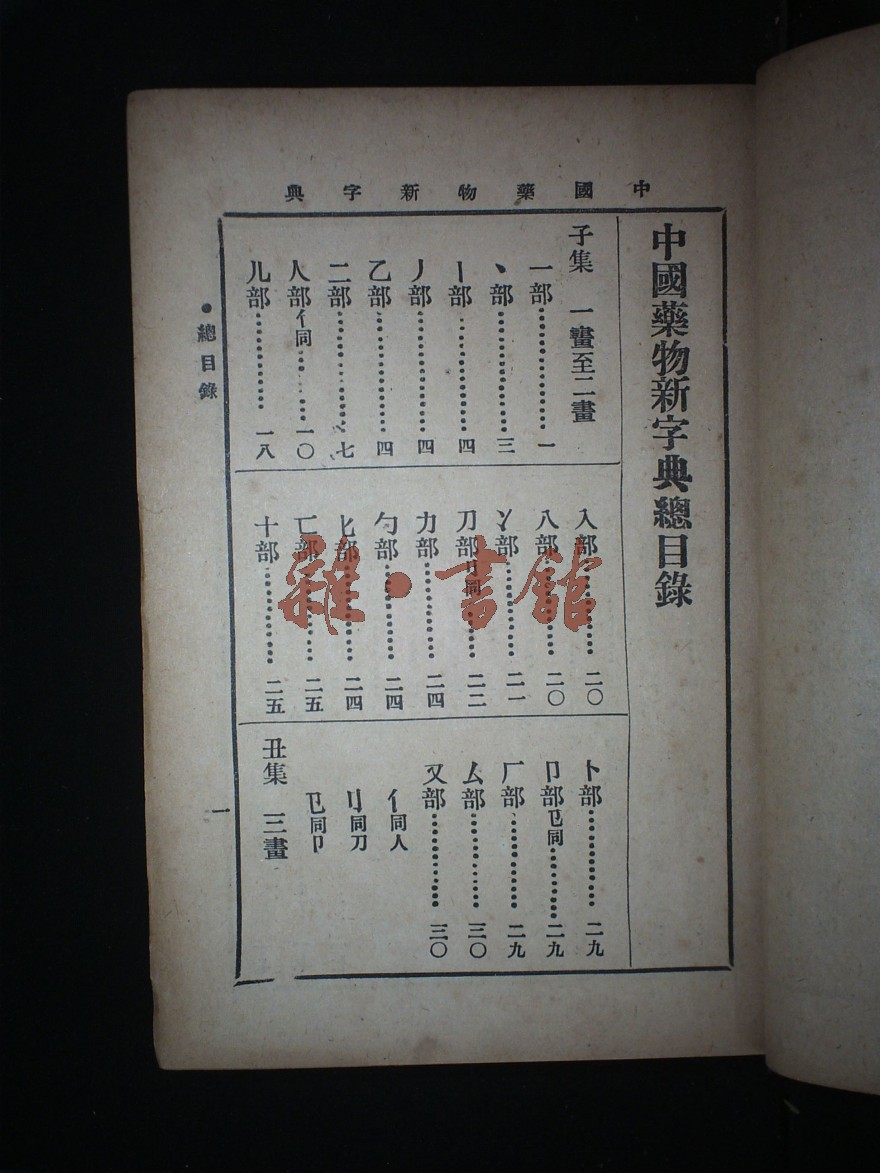 中國藥物新字典
中國藥物新字典總目錄
子集　一畫至二畫
一部………………一
丶部………………三
丨部………………四
丿部………………四
乙部………………四
二部………………七
人部亻同………一〇
儿部……………一八
入部……………二〇
八部……………二〇
冫部……………二一
刀部刂同………二二
力部……………二四
勹部……………二四
匕部……………二四
匚部……………二五
十部……………二五
卜部……………二九
卩部㔾同………二九
厂部……………二九
厶部……………三〇
又部……………三〇
亻同人
刂同刀
㔾同卩
丑集　三畫
●總目錄
一
雜·書館